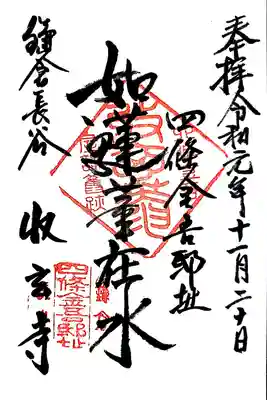 奉拝令和元年十一月二十日
四條金吾邸址
如蓮華在水
鎌倉長谷
收玄寺
四條金吾邸址